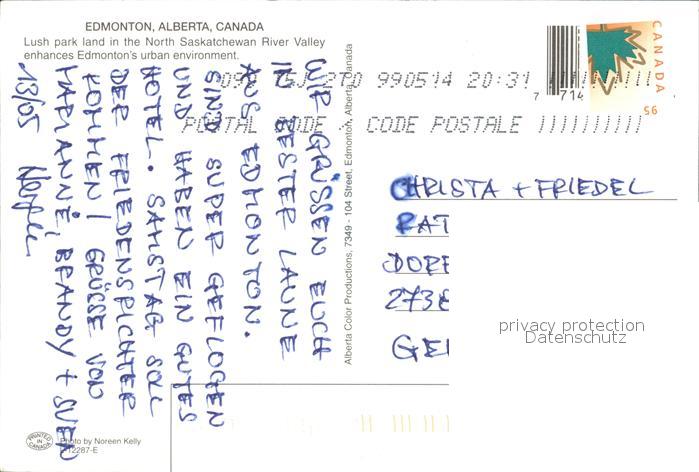 EDMONTON, ALBERTA, CANADA
Lush park land in the North Saskatchewan River Valley
enhances Edmonton's urban environment.
WIR GRÜSSEN EUCH
IN BESTER LAUNE
AUS EDMONTON.
SIND SUPER GEFLOGEN
UND HABEN EIN GUTES
HOTEL. SAMSTAG SOLL
DER FRIEDENSRICHTER
KOMMEN! GRÜSSE VON
MARIANNE, BRANDY + SVEN
13/05
Photo by Noreen Kelly
12287-E
PRINTED IN CANADA
Alberta Color Productions, 7349 - 104 Street, Edmonton, Alberta, Canada
990514 20:31
POSTAL CODE CODE POSTALE
7 714
CANADA
95
CHRISTA + FRIEDEL
RAT
DORF
2738
GEI
privacy protection
Datenschutz